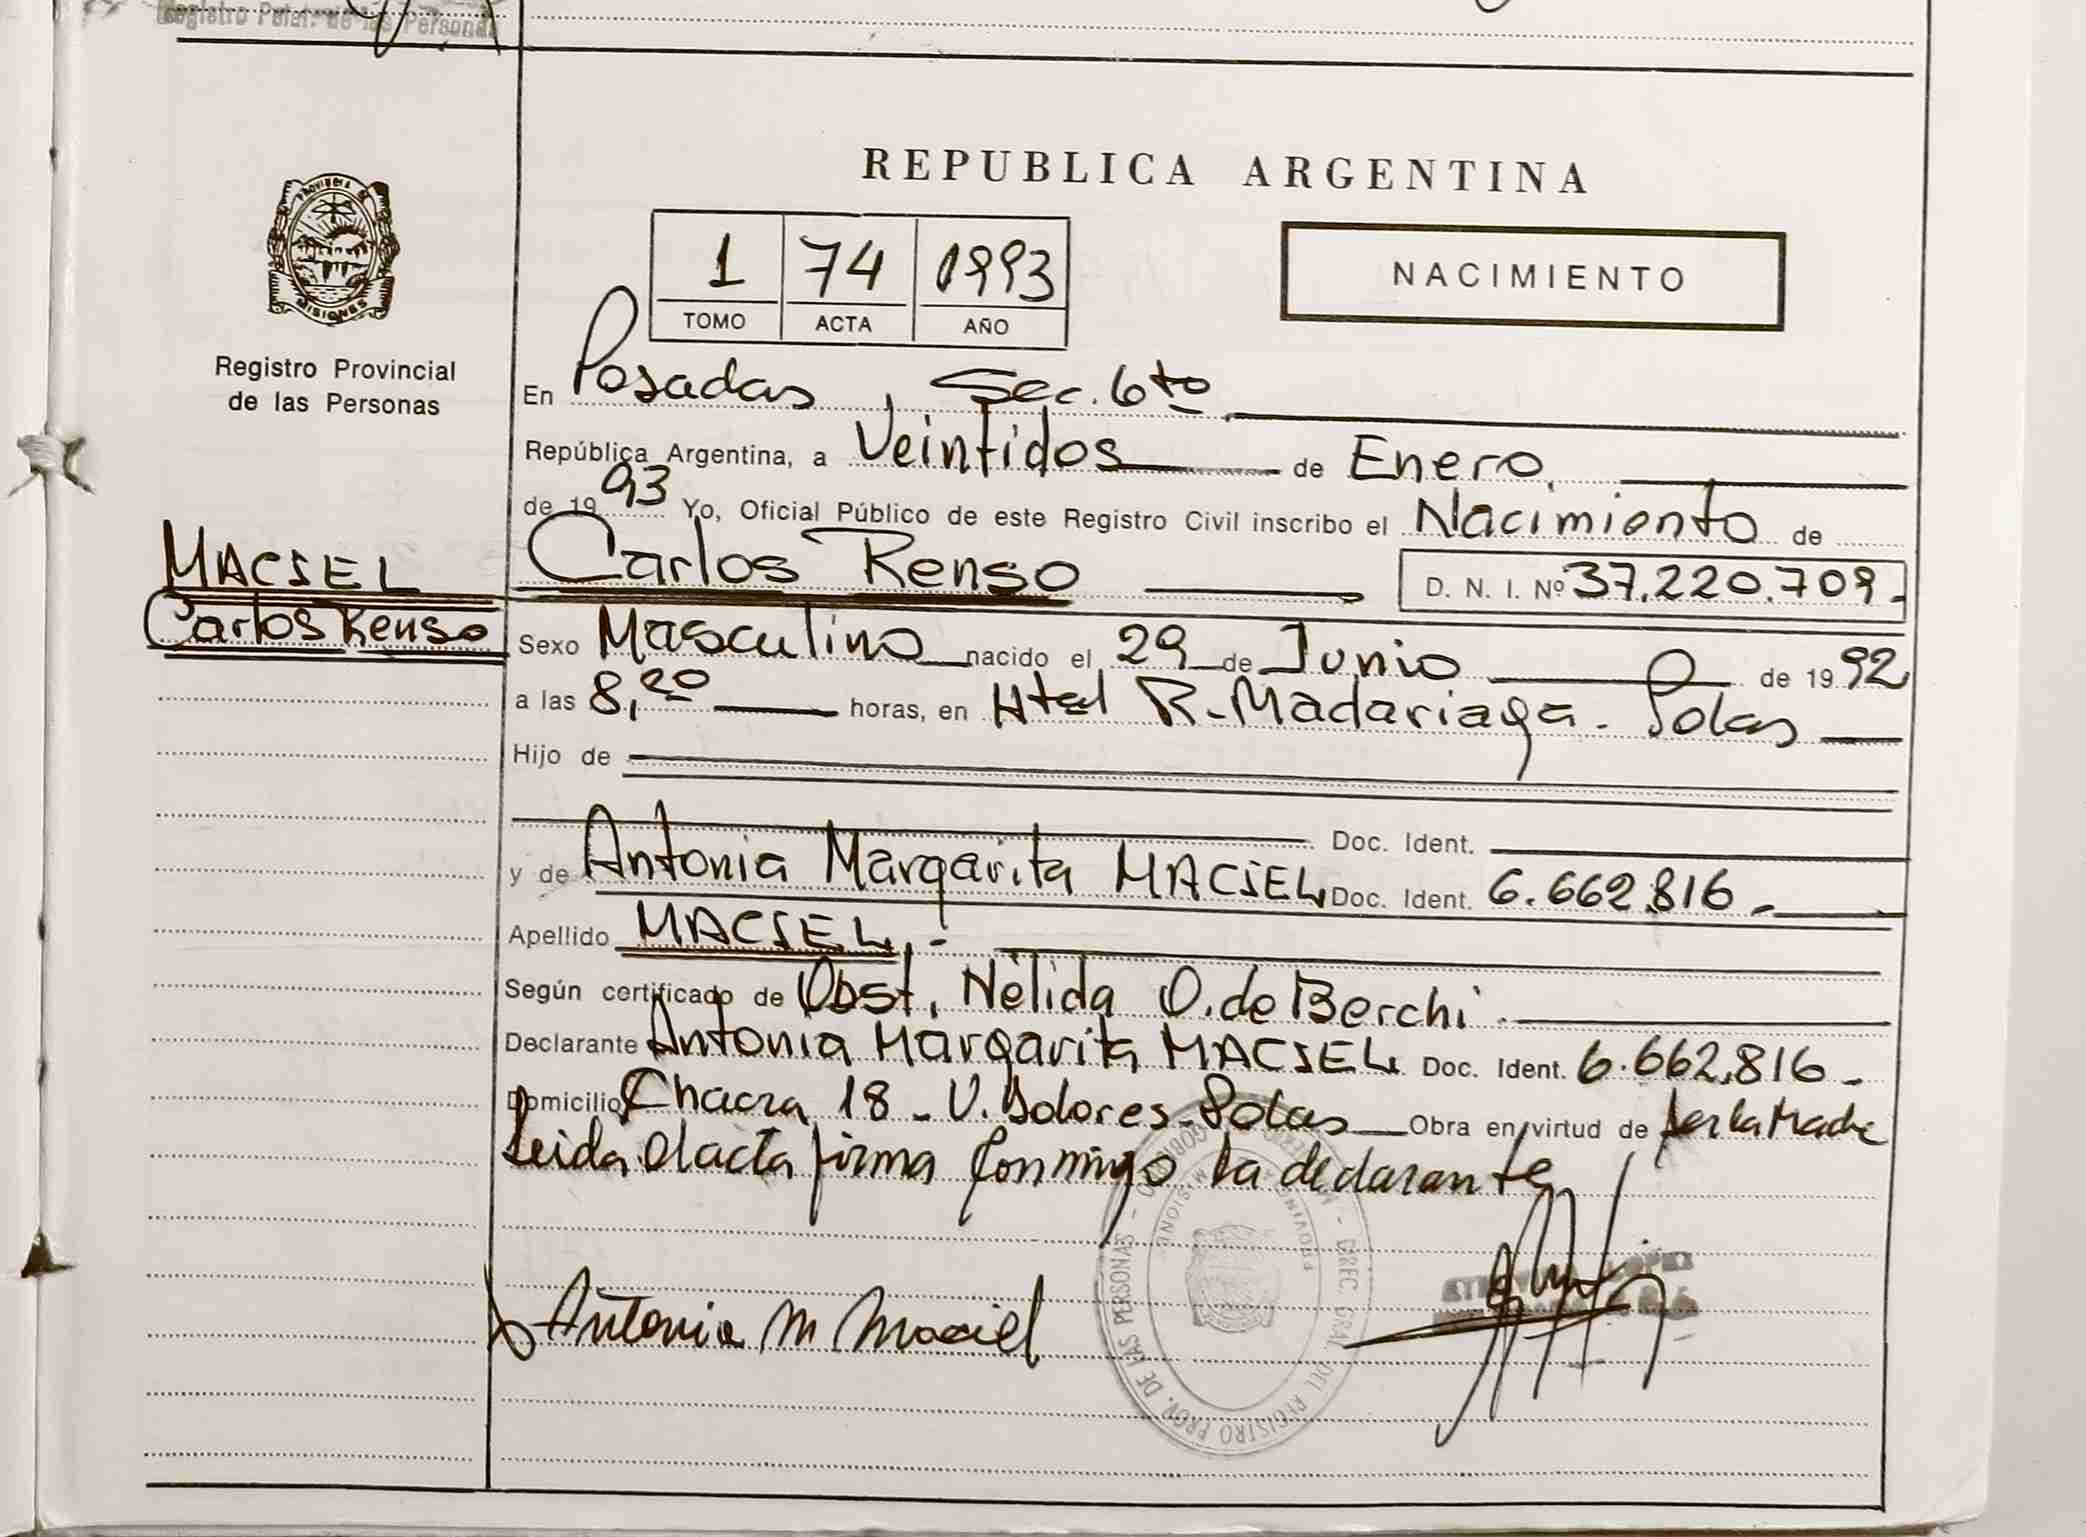 Registro Pcial. de las Personas
Provincia de
MISIONES
Registro Provincial
de las Personas
REPUBLICA ARGENTINA
1 74 1993
TOMO ACTA AÑO
NACIMIENTO
En Posadas, Sec. 6to
República Argentina, a Veintidos de Enero,
de 1993 Yo, Oficial Público de este Registro Civil inscribo el Nacimiento de
MACIEL
Carlos Renso
Carlos Renso D. N. I. Nº 37.220.709.-
Sexo Masculino nacido el 29 de Junio de 1992
a las 8,20 horas, en Htal R. Madariaga - Pdas
Hijo de
Doc. Ident.
y de Antonia Margarita MACIEL Doc. Ident. 6.662.816.-
Apellido MACIEL.-
Según certificado de Obst. Nélida O. de Berchi.
Declarante Antonia Margarita MACIEL Doc. Ident. 6.662.816-
Domicilio Chacra 18 - V. Dolores - Pdas Obra en virtud de ser la Madre
Leida el acta firma conmigo la declarante
Antonia M Maciel
DIREC. GRAL. DEL REGISTRO PROV. DE LAS PERSONAS
LOPEZ